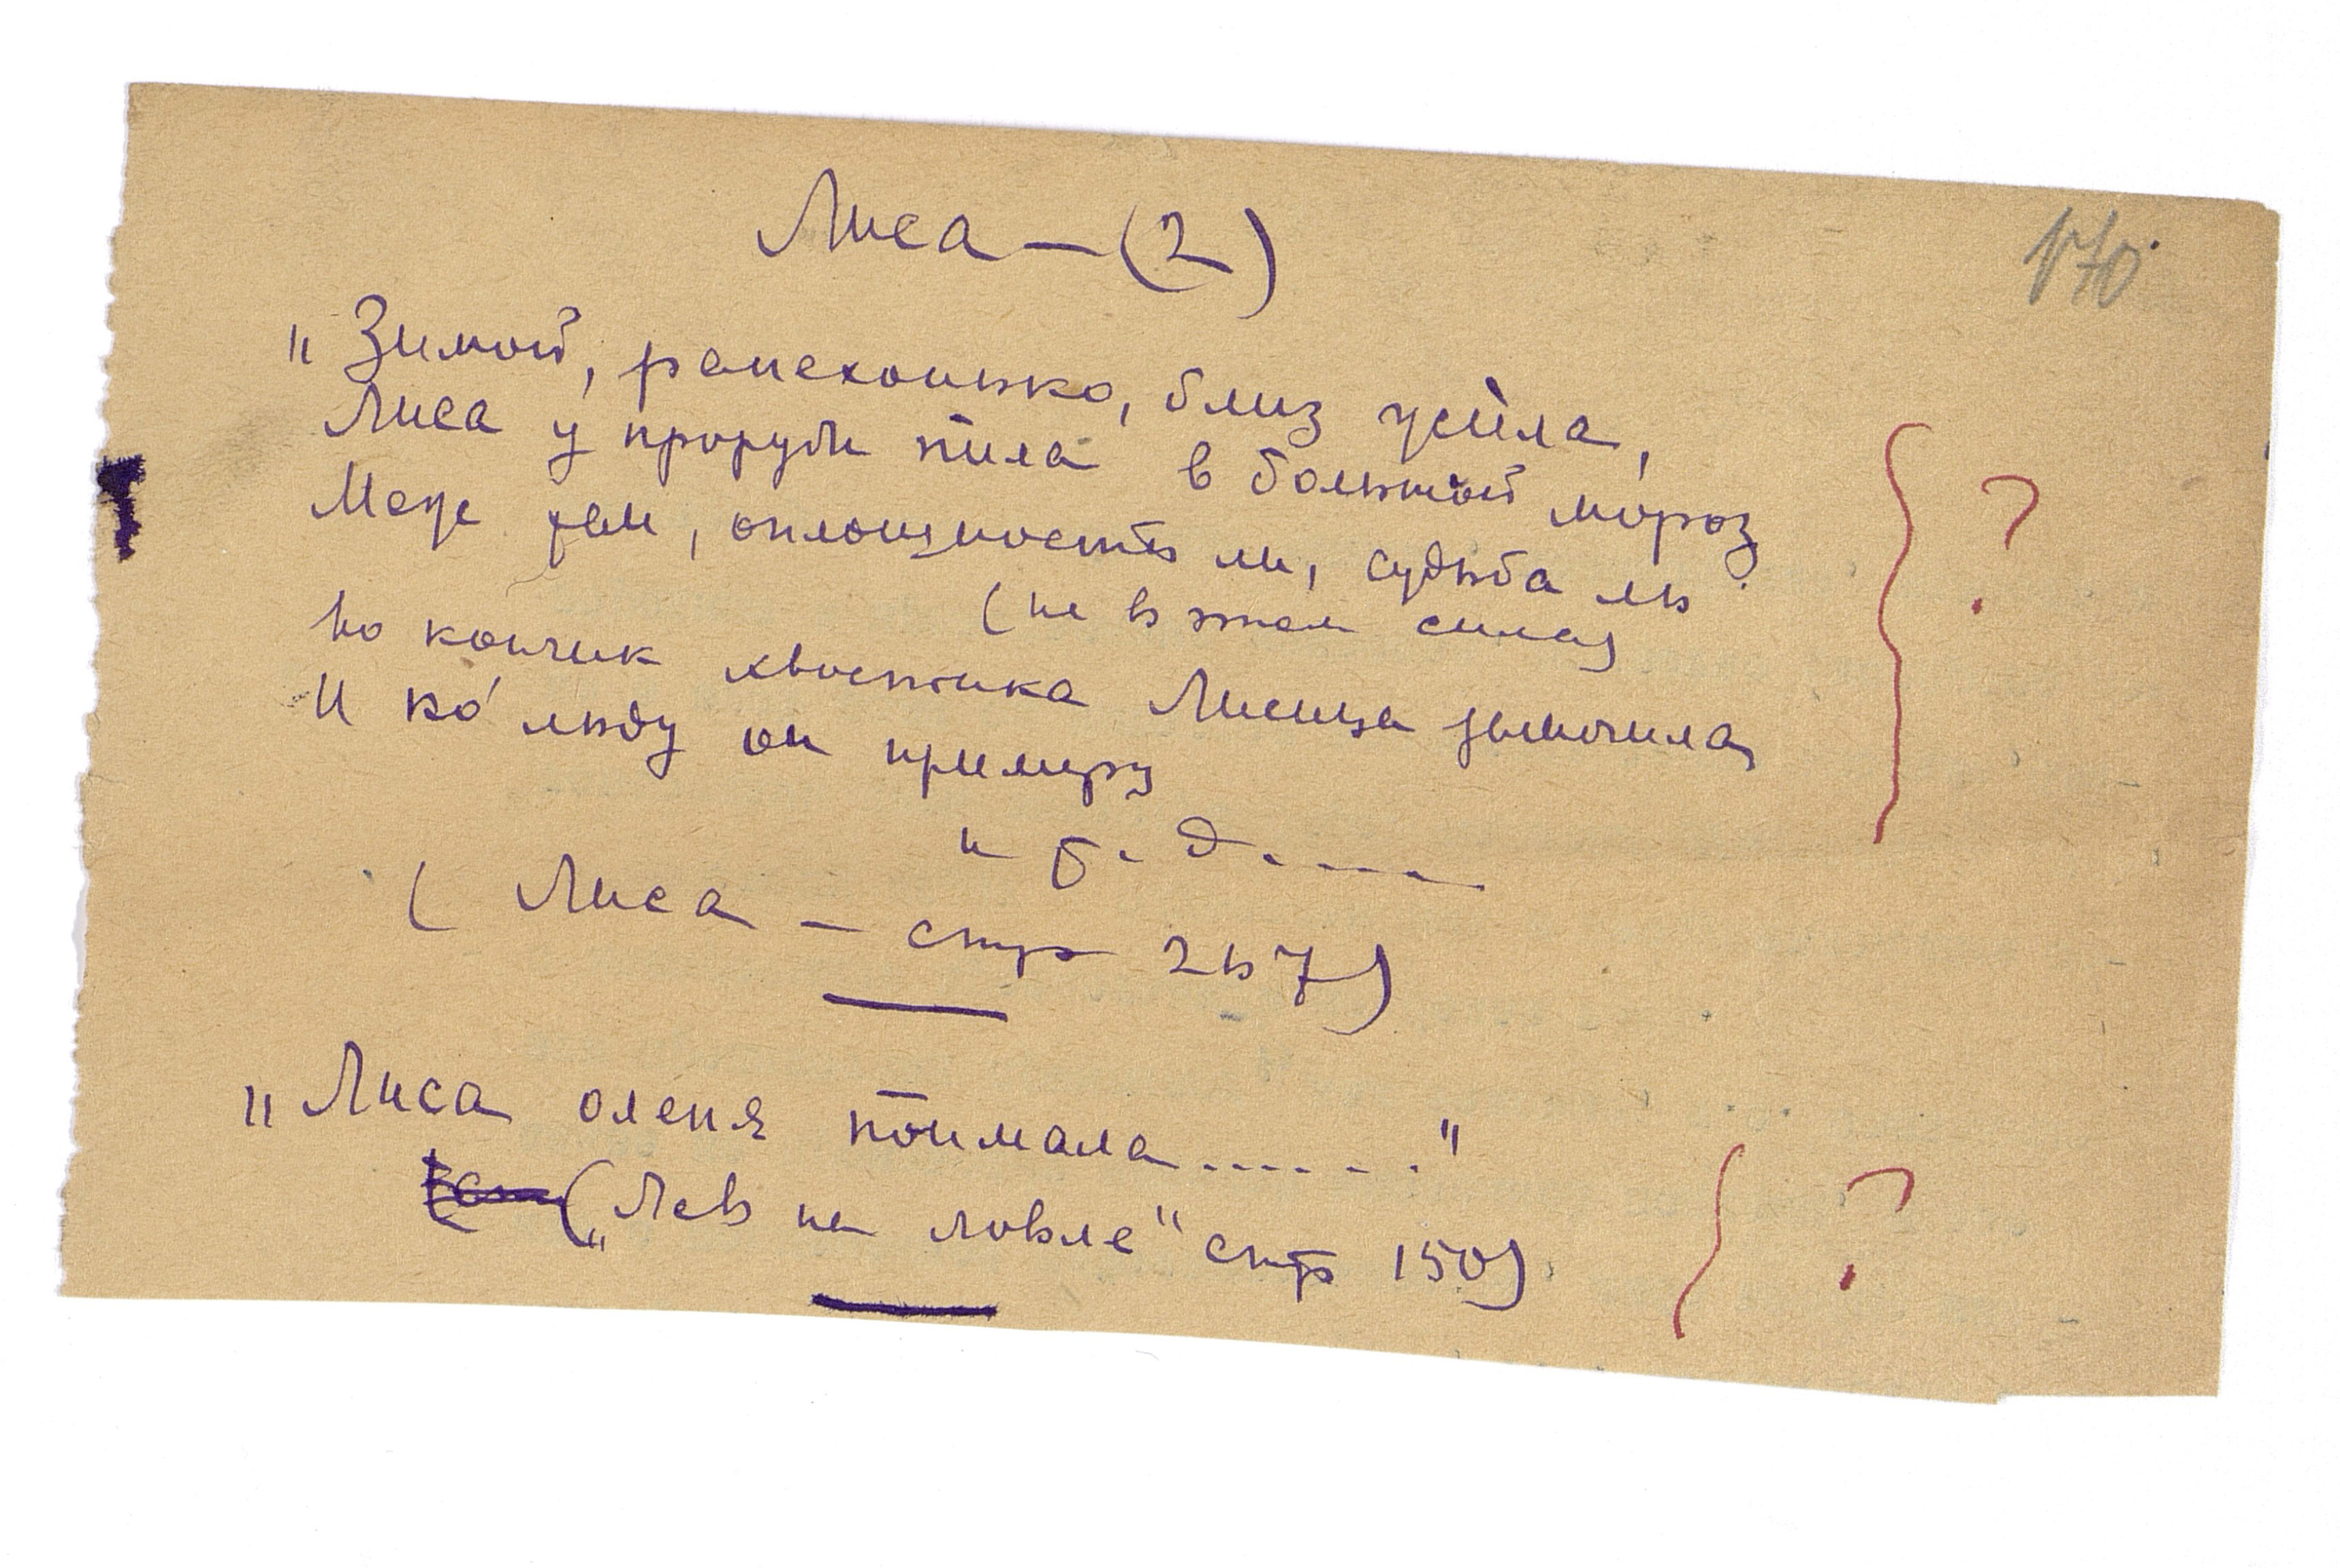 Лиса — (2)
170.
„Зимой, ранехонько, близ жила,
Лиса у проруби пила в большой мороз
Между тем, оплошность ли, судьба ль
(не в этом сила)
Но кончик хвостика Лисица замочила
И ко льду он примерз
и т. д. ------
( Лиса — стр 257)
„Лиса оленя поймала ......"
(„Лев на ловле" стр 150)
?
?